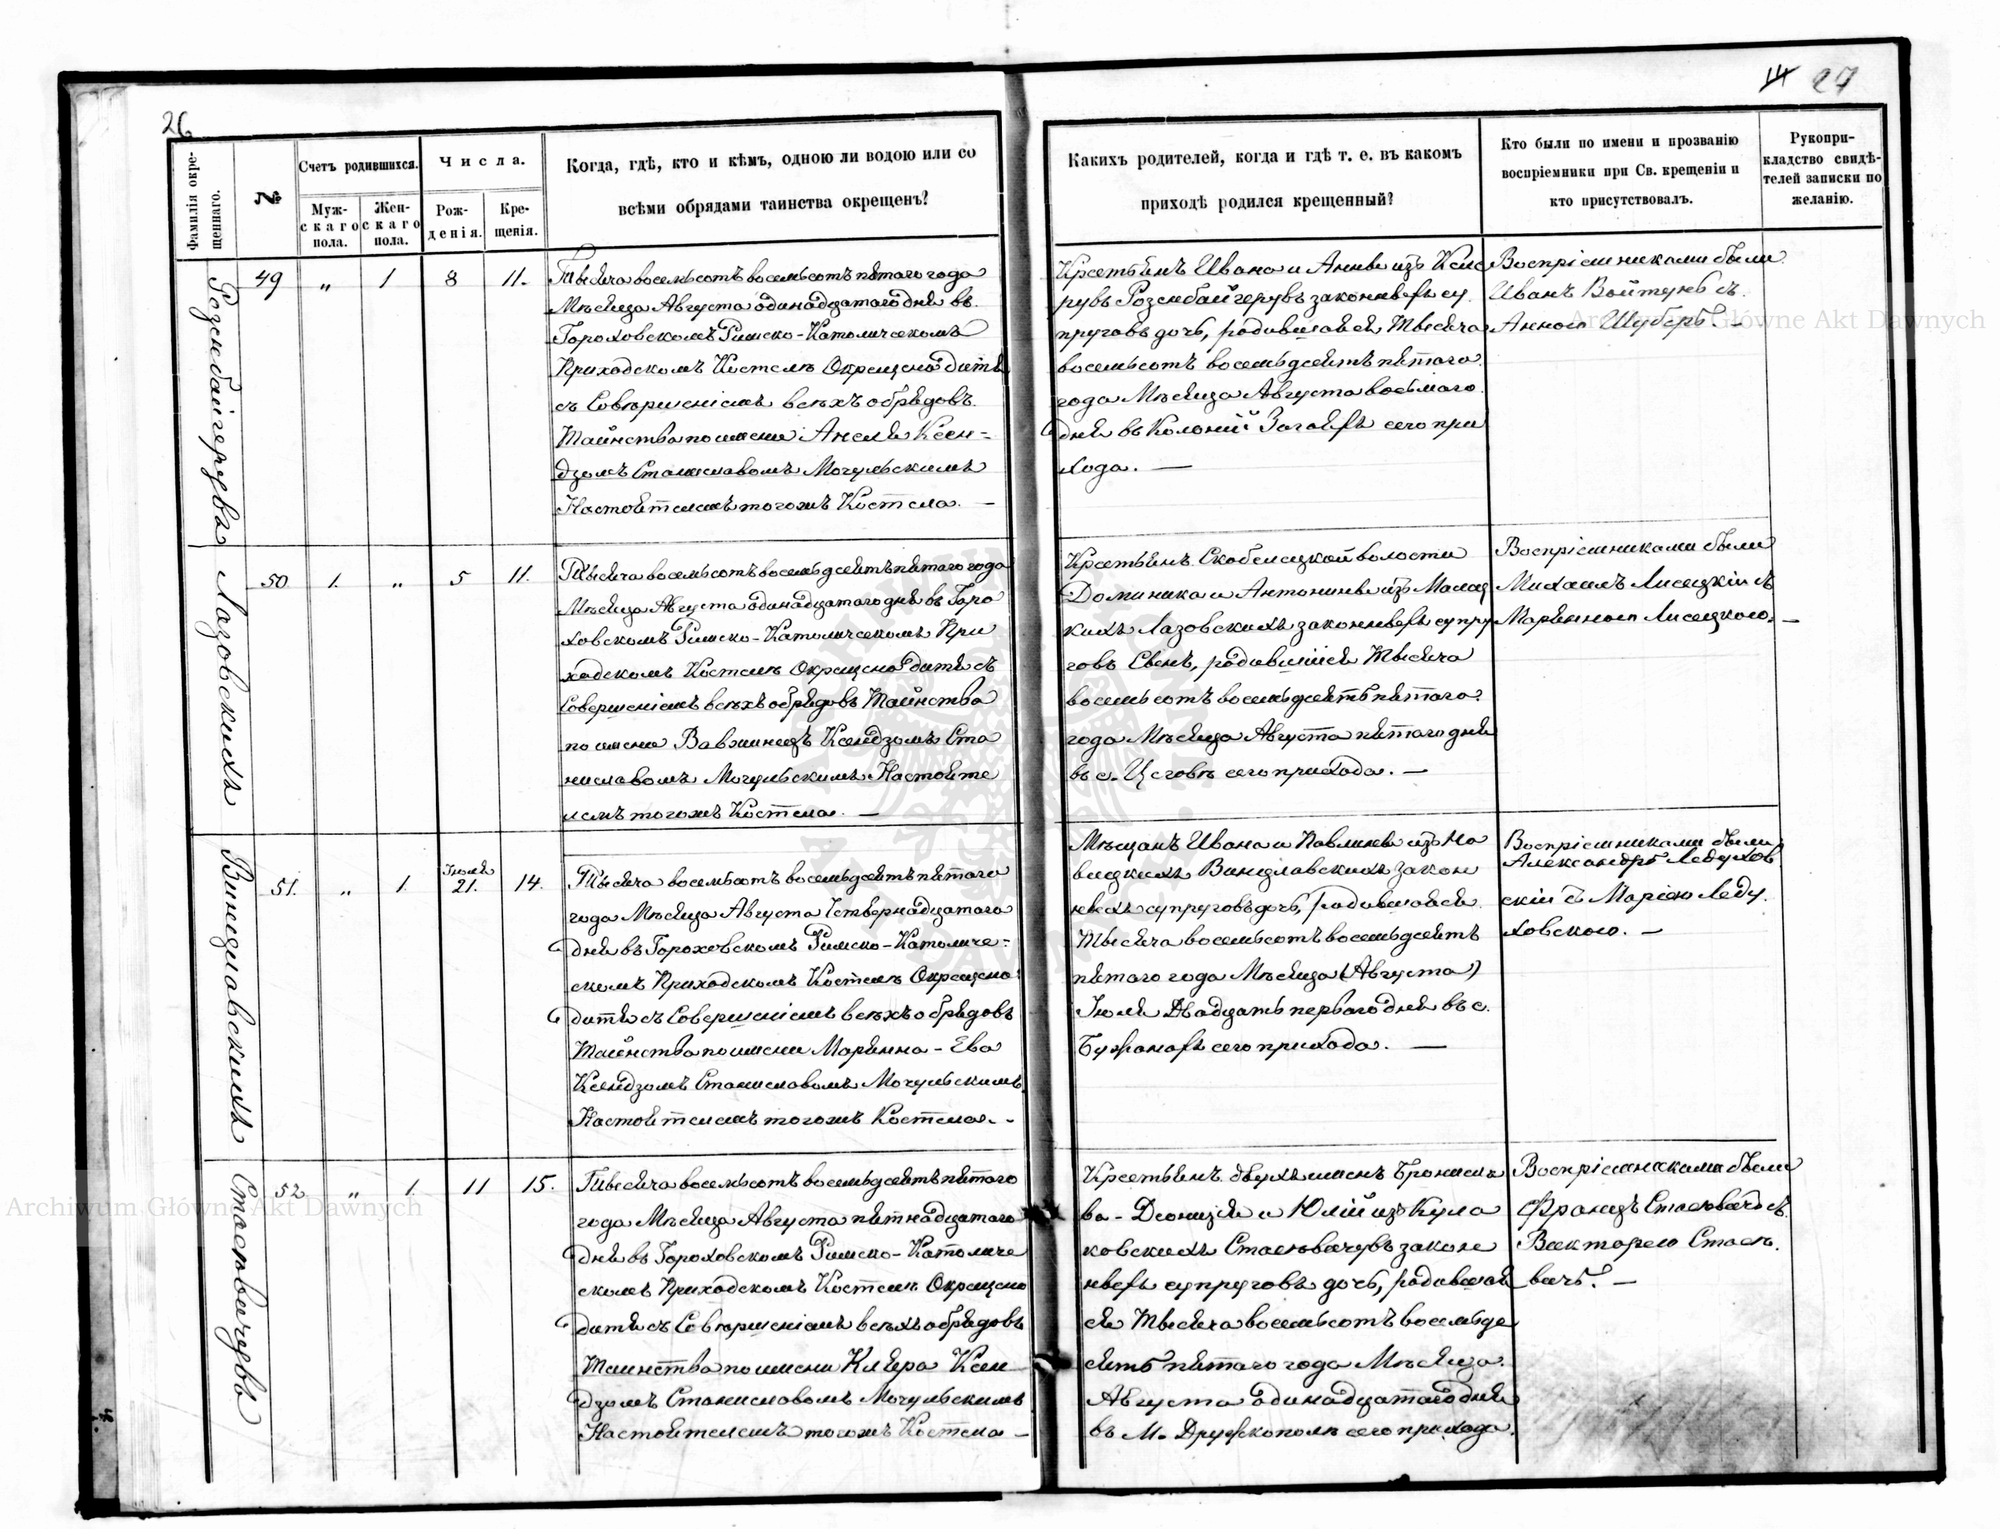 26
14 27
Фамилія окре-
щеннаго.
№
Счетъ родившихся.
Муж-
скаго
пола.
Жен-
скаго
пола.
Числа.
Рож-
денія.
Кре-
щенія.
Когда, гдѣ, кто и кѣмъ, одною ли водою или со
всѣми обрядами таинства окрещенъ?
Какихъ родителей, когда и гдѣ т. е. въ какомъ
приходѣ родился крещенный?
Кто были по имени и прозванію
воспріемники при Св. крещеніи и
кто присутствовалъ.
Рукопри-
кладство свидѣ-
телей записки по
желанію.
Розенбайгерувъ
49 „ 1 8 11.
Тысяча восемьсотъ восемьсотъ пятаго года
Мѣсяца Августа одинадцатаго дня въ
Гороховскомъ Римско-Католическомъ
Приходскомъ Костелѣ Окрещено дитя
съ Совершеніемъ всѣхъ обрядовъ
Таинства по имени Анеля Ксен-
дзомъ Станиславомъ Мочульскимъ
Настоятелемъ тогожъ Костела. —
Крестьянъ Ивана и Анны изъ
рувъ Розенбайгерувъ законныхъ су
пруговъ дочь, родившаяся Тысяча
восемьсотъ восемьдесятъ пятаго
года Мѣсяца Августа восьмаго
дня въ Колоніи сего при
хода. —
Воспріемниками были
Иванъ Войтунь съ
Анною Шуберъ. —
Лазовскихъ
50 1. „ 5 11.
Тысяча восемьсотъ восемьдесятъ пятаго года
Мѣсяца Августа одинадцатаго дня въ Горо
ховскомъ Римско-Католическомъ При
ходскомъ Костелѣ Окрещено дитя съ
Совершеніемъ всѣхъ обрядовъ Таинства
по имени Вавжинецъ Ксендзомъ Ста
ниславомъ Мочульскимъ Настояте
лемъ тогожъ Костела. —
Крестьянъ Скобелецкой волости
Доминика и Антонины изъ
кихъ Лазовскихъ законныхъ супру
говъ Сынъ, родившійся Тысяча
восемьсотъ восемьдесятъ пятаго
года Мѣсяца Августа пятаго дня
въ с. Цеговѣ сего прихода. —
Воспріемниками были
Михаилъ Лисецкій съ
Марянною Лисецкого. —
Винцлавскихъ
51. „ 1. Іюля 21. 14.
Тысяча восемьсотъ восемьдесятъ пятаго
года Мѣсяца Августа Четвернадцатаго
дня въ Гороховскомъ Римско-Католиче-
скомъ Приходскомъ Костелѣ Окрещено
дитя съ Совершеніемъ всѣхъ обрядовъ
Таинства по имени Марянна-Ева
Ксендзомъ Станиславомъ Мочульскимъ
Настоятелемъ тогожъ Костела. -
Мѣщанъ Ивана и Павлины изъ
Винцлавскихъ закон
ныхъ супруговъ дочь, родившаяся
Тысяча восемьсотъ восемьдесятъ
пятаго года Мѣсяца (Августа)
Іюля Двадцать перваго дня въ с.
Бужанахъ сего прихода. —
Воспріемниками были
Александръ Ледухов
скій съ Маріею Леду
ховскою. —
Стасювичувъ
52 „ 1. 11 15.
Тысяча восемьсотъ восемьдесятъ пятаго
года Мѣсяца Августа пятнадцатаго
дня въ Гороховскомъ Римско-Католиче
скомъ Приходскомъ Костелѣ Окрещено
дитя съ Совершеніемъ всѣхъ обрядовъ
Таинства по имени Кляра Ксен
дзомъ Станиславомъ Мочульскимъ
Настоятелемъ тогожъ Костела —
Крестьянъ двухъ именъ Бронисла
ва-Деонизія и Юліи изъ Кула
ковскихъ Стасювичувъ закон
ныхъ супруговъ дочь, родившая
ся Тысяча восемьсотъ восемьде
сятъ пятаго года Мѣсяца
Августа одинадцатаго дня
въ М. Дружкополѣ сего прихода.
Воспріемниками были
Францъ Стасювичъ съ
Викторею Стасю
вичъ. —
Archiwum Główne Akt Dawnych
Archiwum Główne Akt Dawnych